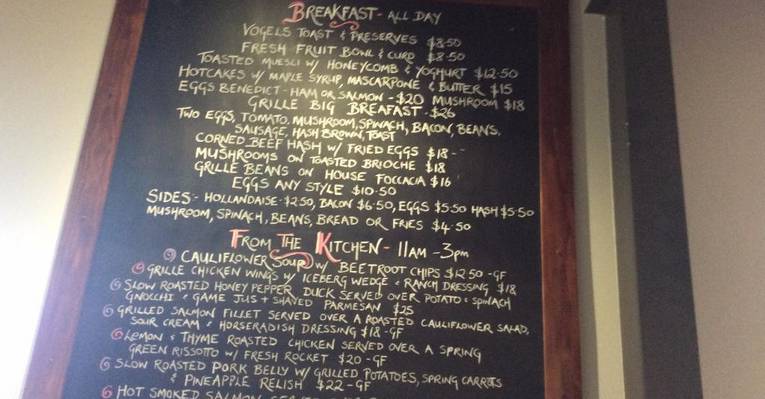 BREAKFAST - ALL DAY
VOGELS TOAST & PRESERVES $8.50
FRESH FRUIT BOWL & CURD $8.50
TOASTED MUESLI W/ HONEYCOMB & YOGHURT $12.50
HOTCAKES W/ MAPLE SYRUP, MASCARPONE & BUTTER $15
EGGS BENEDICT - HAM OR SALMON - $20 MUSHROOM $18
GRILLE BIG BREAFAST - $26
TWO EGGS, TOMATO, MUSHROOM, SPINACH, BACON, BEANS,
SAUSAGE, HASH BROWN, TOAST
CORNED BEEF HASH W/ FRIED EGGS $18 -
MUSHROOMS ON TOASTED BRIOCHE $18
GRILLE BEANS ON HOUSE FOCCACIA $16
EGGS ANY STYLE $10.50
SIDES - HOLLANDAISE - $2.50, BACON $6.50, EGGS $5.50 HASH $5.50
MUSHROOM, SPINACH, BEANS, BREAD OR FRIES $4.50
FROM THE KITCHEN - 11AM - 3PM
CAULIFLOWER SOUP W/ BEETROOT CHIPS $12.50 - GF
GRILLE CHICKEN WINGS W/ ICEBERG WEDGE & RANCH DRESSING $18
SLOW ROASTED HONEY PEPPER DUCK SERVED OVER POTATO & SPINACH
GNOCCHI & GAME JUS + SHAVED PARMESAN $25
GRILLED SALMON FILLET SERVED OVER A ROASTED CAULIFLOWER SALAD,
SOUR CREAM & HORSERADISH DRESSING $18 - GF
LEMON & THYME ROASTED CHICKEN SERVED OVER A SPRING
GREEN RISSOTTO W/ FRESH ROCKET $20 - GF
SLOW ROASTED PORK BELLY W/ GRILLED POTATOES, SPRING CARROTS
& PINEAPPLE RELISH $22 - GF
HOT SMOKED SALMON